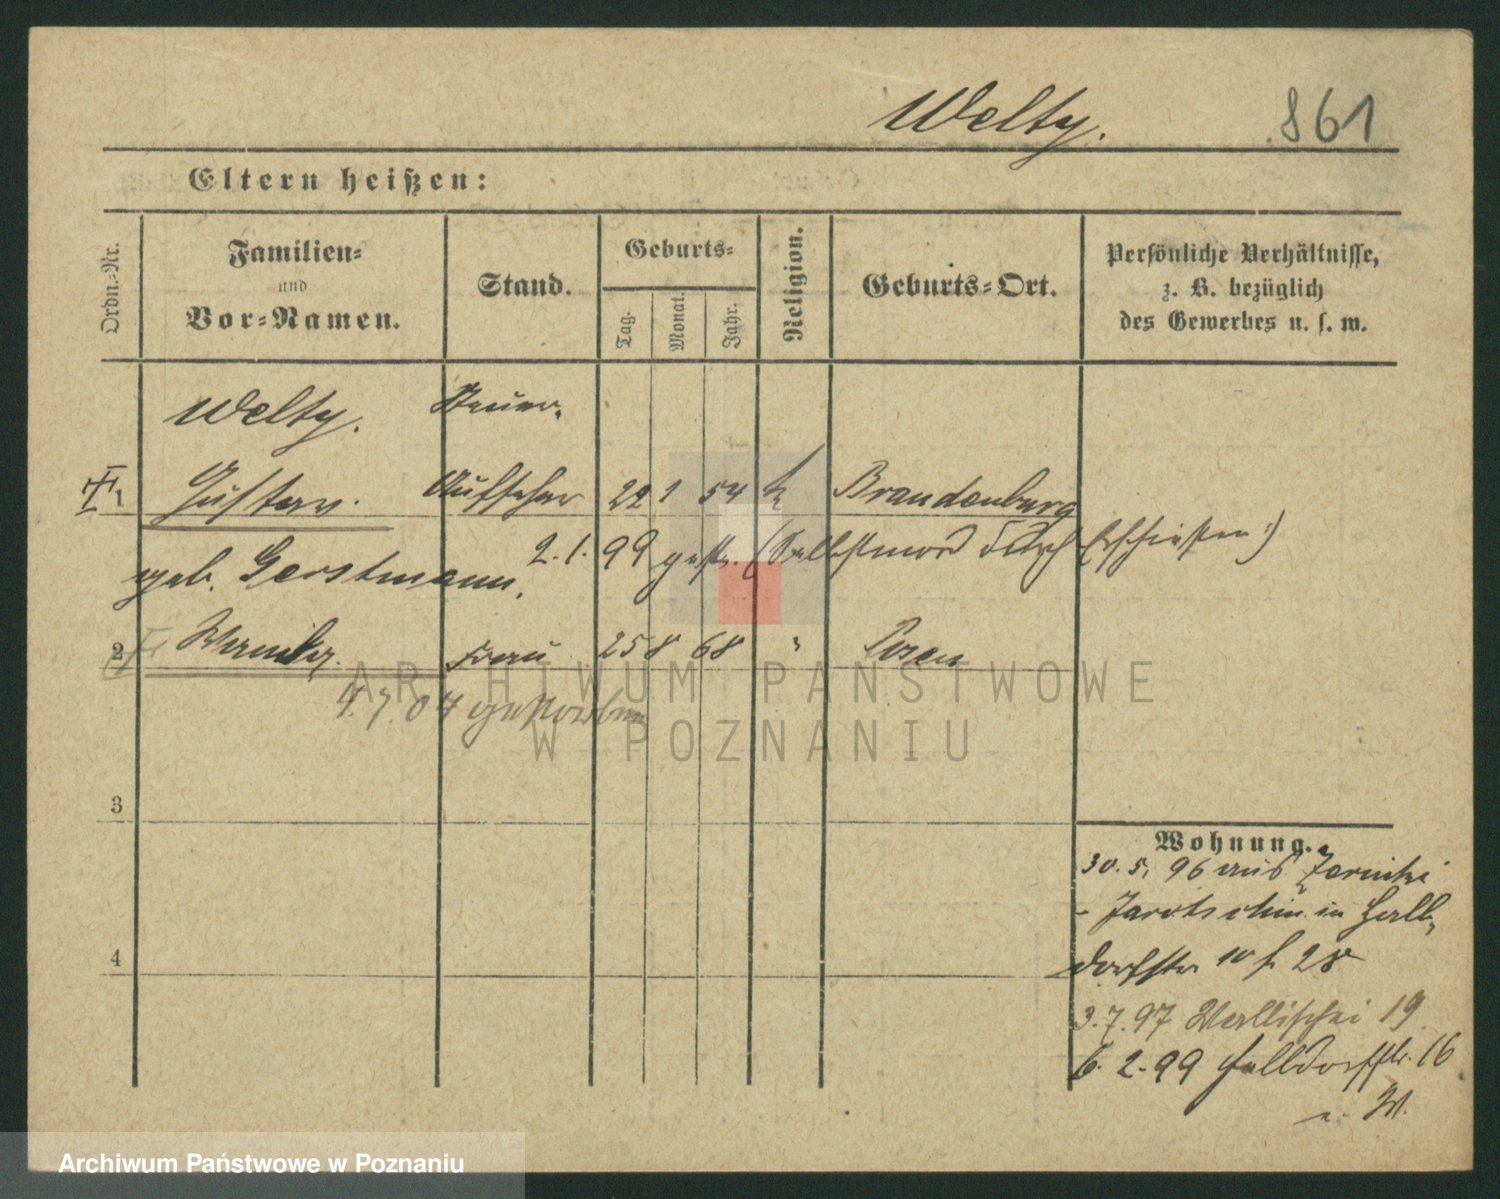 Welty. 861
Eltern heißen:
Ordn.-Nr.
Familien-
und
Vor-Namen.
Stand.
Geburts-
Tag.
Monat.
Jahr.
Religion.
Geburts-Ort.
Persönliche Verhältnisse,
z. B. bezüglich
des Gewerbes u. s. w.
Welty. Steuer-
1 Gustav. Aufseher 22 1 54 k Brandenburg
2.1.99 gestr. (Selbstmord durch Erschießen!)
geb. Gerstmann,
2 Frau 25 8 68 " Posen
4.7.07 gestorben
3
4
Wohnung.
30.5.96 aus Zerniki
- Jarotschin in Halb-
dorfstr 10 f. 28
3.7.97 Wallischei 19
6.2.99 Halbdorfstr. 16
ARCHIWUM PAŃSTWOWE
W POZNANIU
Archiwum Państwowe w Poznaniu